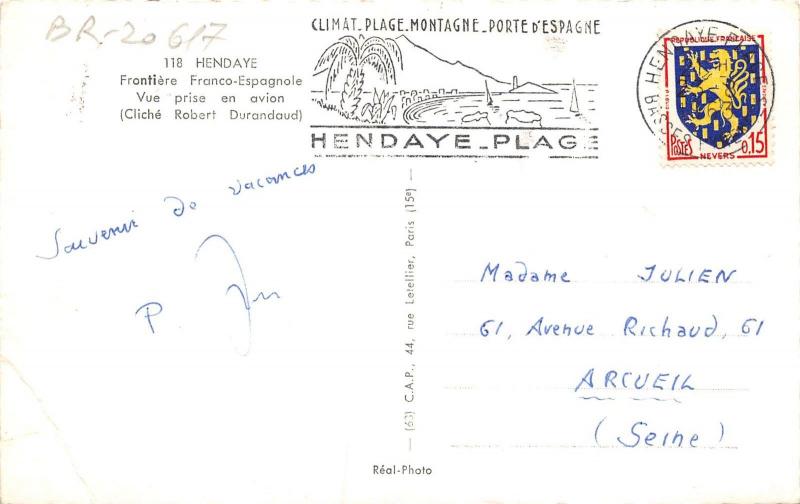 BR-20617
118 HENDAYE
Frontière Franco-Espagnole
Vue prise en avion
(Cliché Robert Durandaud)
CLIMAT_PLAGE_MONTAGNE_PORTE D'ESPAGNE
HENDAYE_PLAGE
HENDAYE
BASSES
REPUBLIQUE FRANÇAISE
POSTES
NEVERS
0,15
Souvenir de vacances
P.
(63) C.A.P., 44, rue Letellier, Paris (15e)
Madame JULIEN
61, Avenue Richaud, 61
ARCUEIL
(Seine)
Réal-Photo